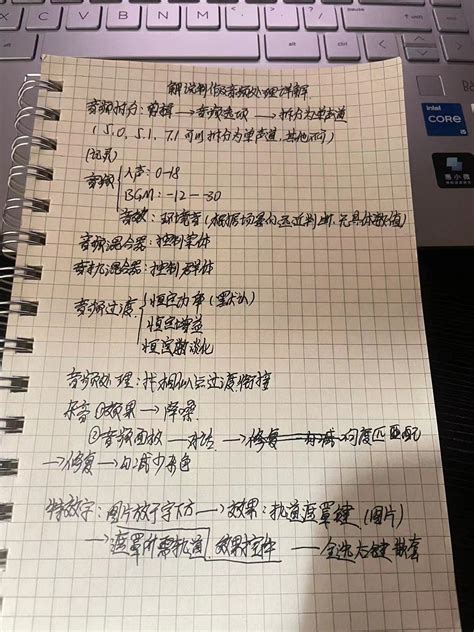 解说制作及音频处理详解
音频拆分：剪辑 → 音频选项 → 拆分为单声道
(5.0、5.1、7.1可以拆分为单声道，其他不可)
音频 人声：0-18
BGM：-12--30
音效：环境音(根据场景的远近判断，无具体数值)
音频混合器：控制集体
音轨混合器：控制群体
音频过渡 恒定功率(默认)
恒定增益
指数淡化
音频处理：找相似点过渡衔接
杂音 ①效果 → 降噪
②音频面板 → 对话 → 响度匹配
→ 修复 → 勾减少杂色
特效字：图片放于字下方 → 效果：轨道遮罩键 (图片)
→ 遮罩所需轨道 效果控件 — 全选右键嵌套
intel
CORE
i5
惠小微